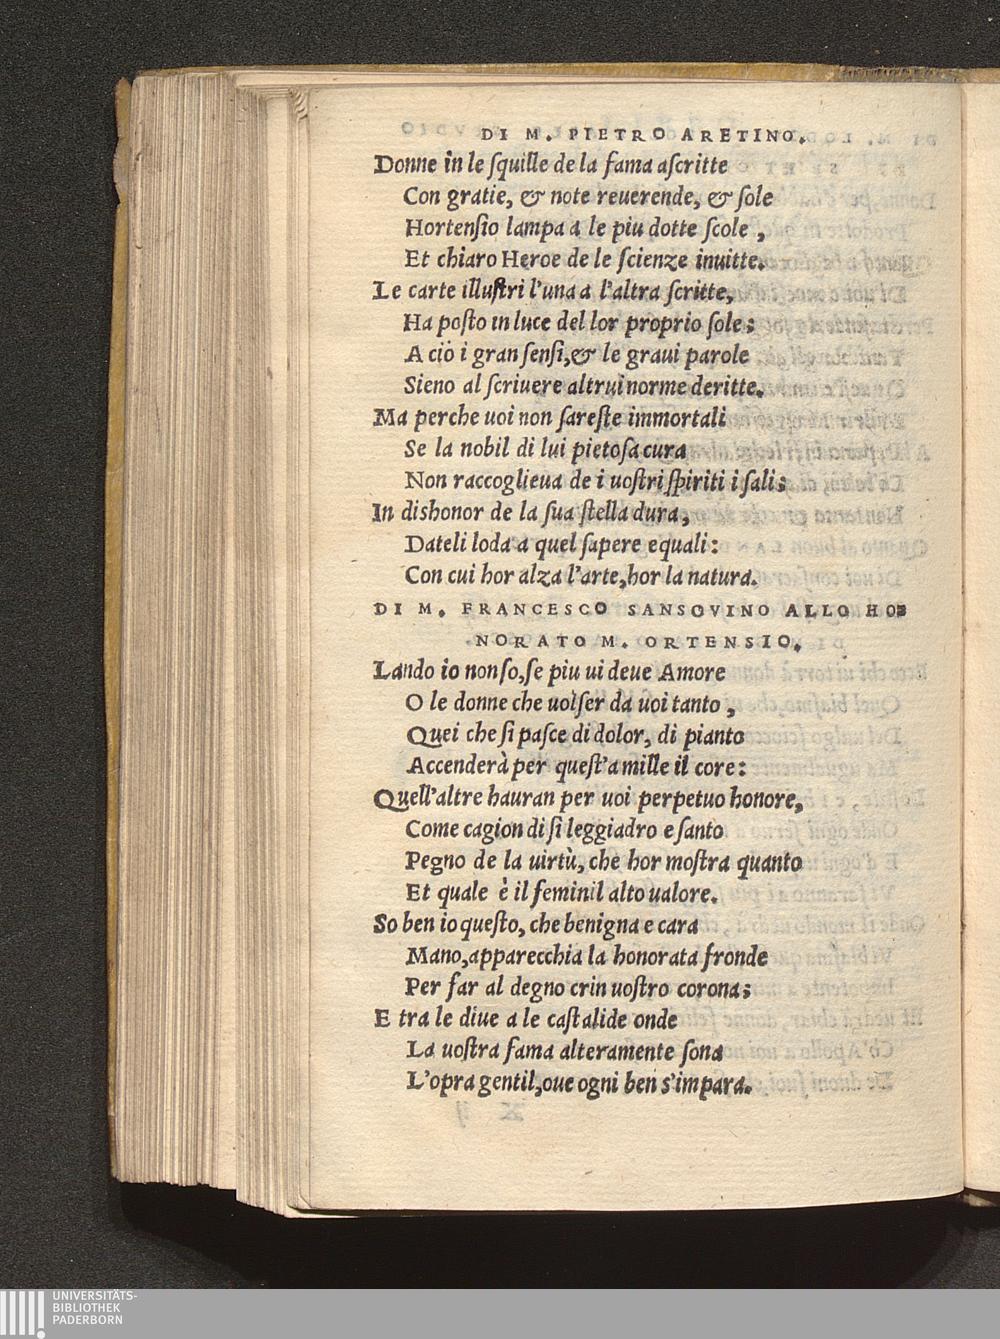 DI M. PIETRO ARETINO.
Donne in le ſquille de la fama aſcritte
Con gratie, & note reuerende, & ſole
Hortenſio lampa a le piu dotte ſcole,
Et chiaro Heroe de le ſcienze inuitte.
Le carte illuſtri l'una a l'altra ſcritte,
Ha poſto in luce del lor proprio ſole;
A ciò i gran ſenſi, & le graui parole
Sieno al ſcriuere altrui norme deritte.
Ma perche uoi non ſareſte immortali
Se la nobil di lui pietoſa cura
Non raccoglieua de i uoſtri ſpiriti i ſali;
In dishonor de la ſua ſtella dura,
Dateli loda a quel ſapere equali:
Con cui hor alza l'arte, hor la natura.
DI M. FRANCESCO SANSOVINO ALLO HO=
NORATO M. ORTENSIO.
Lando io non ſo, ſe piu ui deue Amore
O le donne che uolſer da uoi tanto,
Quei che ſi paſce di dolor, di pianto
Accenderà per queſt'a mille il core:
Quell'altre hauran per uoi perpetuo honore,
Come cagion di ſi leggiadro e ſanto
Pegno de la uirtù, che hor moſtra quanto
Et quale è il feminil alto ualore.
So ben io queſto, che benigna e cara
Mano, apparecchia la honorata fronde
Per far al degno crin uoſtro corona;
E tra le diue a le caſtalide onde
La uoſtra fama alteramente ſona
L'opra gentil, oue ogni ben s'impara.
UNIVERSITÄTS-
BIBLIOTHEK
PADERBORN